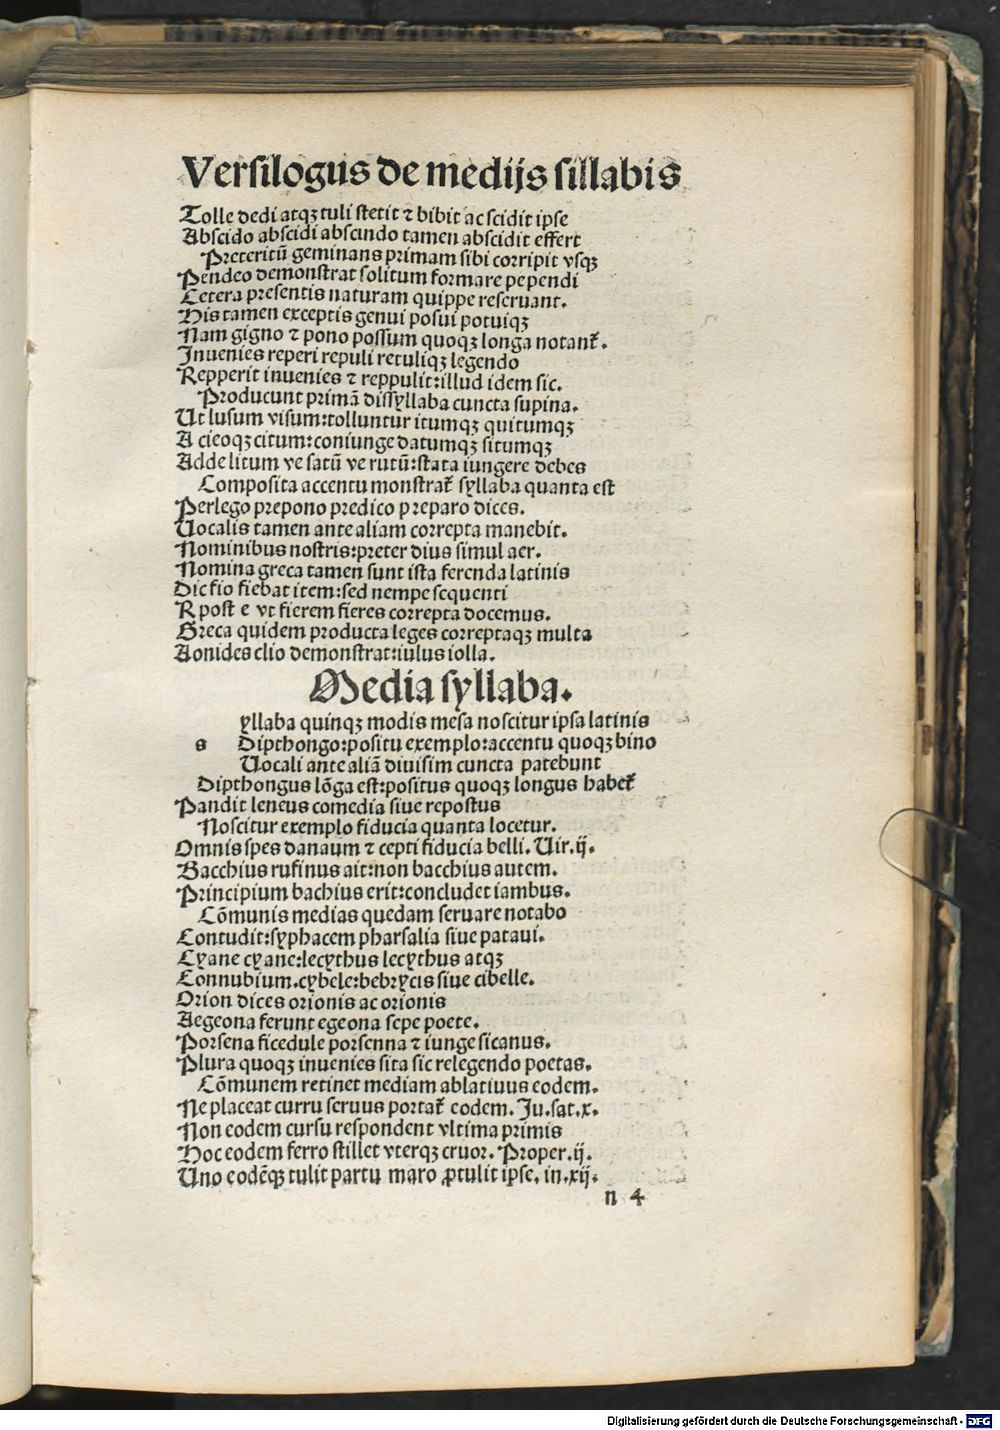 Versilogus de medijs sillabis
Tolle dedi atqꝫ tuli stetit ⁊ bibit ac scidit ipse
Abscido abscidi abscindo tamen abscidit effert
Preteritū geminans primam sibi corripit vsqꝫ
Pendeo demonstrat solitum formare pependi
Cetera presentis naturam quippe reseruant.
His tamen exceptis genui posui potuiqꝫ
Nam gigno ⁊ pono possum quoqꝫ longa notant᷑.
Inuenies reperi repuli retuliqꝫ legendo
Repperit inuenies ⁊ reppulit:illud idem sic.
Producunt primā dissyllaba cuncta supina.
Ut lusum visum:tolluntur itumqꝫ quitumqꝫ
A cieoqꝫ citum:coniunge datumqꝫ situmqꝫ
Adde litum ve satū ve rutū:stata iungere debes
Composita accentu monstrat᷑ syllaba quanta est
Perlego prepono predico preparo dices.
Uocalis tamen ante aliam correpta manebit.
Nominibus nostris:preter dius simul aer.
Nomina greca tamen sunt ista ferenda latinis
Dic fio fiebat item:sed nempe sequenti
R post e vt fierem fieres correpta docemus.
Greca quidem producta leges correptaqꝫ multa
Aonides clio demonstrat:iulus iolla.
Media syllaba.
yllaba quinqꝫ modis mesa noscitur ipsa latinis
s Dipthongo:positu exemplo:accentu quoqꝫ bino
Uocali ante aliā diuisim cuncta patebunt
Dipthongus lōga est:positus quoqꝫ longus habet᷑
Pandit leneus comedia siue repostus
Noscitur exemplo fiducia quanta locetur.
Omnis spes danaum ⁊ cepti fiducia belli. Uir.ij.
Bacchius rufinus ait:non bacchius autem.
Principium bachius erit:concludet iambus.
Cōmunis medias quedam seruare notabo
Contudit:syphacem pharsalia siue pataui.
Cyane cyane:lecythus lecythus atqꝫ
Connubium.cybele:bebrycis siue cibelle.
Orion dices orionis ac orionis
Aegeona ferunt egeona sepe poete.
Porsena ficedule porsenna ⁊ iunge sicanus.
Plura quoqꝫ inuenies sita sic relegendo poetas.
Cōmunem retinet mediam ablatiuus eodem.
Ne placeat curru seruus portat᷑ eodem. Iu.sat.x.
Non eodem cursu respondent vltima primis
Hoc eodem ferro stillet vterqꝫ cruor. Proper.ij.
Uno eodēqꝫ tulit partu maro ꝓtulit ipse. in.xij.
n 4
Digitalisierung gefördert durch die Deutsche Forschungsgemeinschaft - DFG